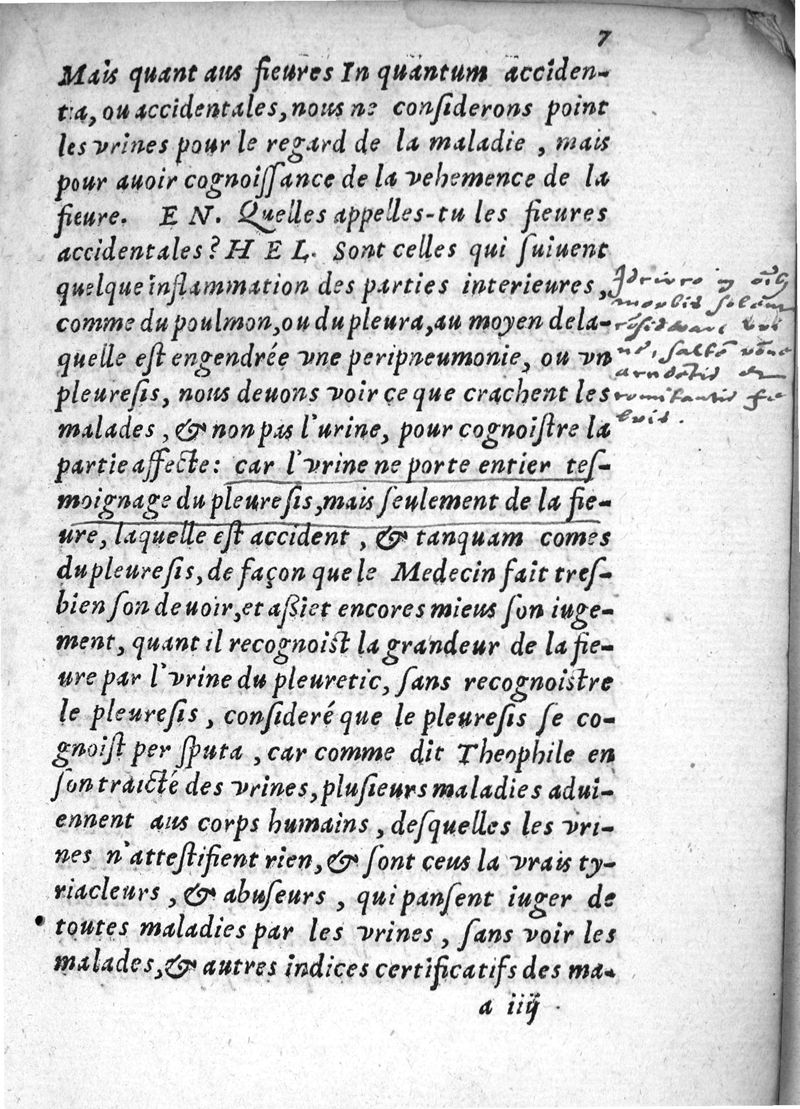 7
Mais quant aus fieures In quantum acciden-
tia, ou accidentales, nous ne considerons point
les vrines pour le regard de la maladie, mais
pour auoir cognoissance de la vehemence de la
fieure. EN. Quelles appelles-tu les fieures
accidentales? HEL. Sont celles qui suiuent
quelque inflammation des parties interieures,
comme du poulmon, ou du pleura, au moyen de la-
quelle est engendrée vne peripneumonie, ou vn
pleuresis, nous deuons voir ce que crachent les
malades, & non pas l'urine, pour cognoistre la
partie affecte: car l'vrine ne porte entier tes-
moignage du pleuresis, mais seulement de la fie-
ure, laquelle est accident, & tanquam comes
du pleuresis, de façon que le Medecin fait tres-
bien son deuoir, et aßiet encores mieus son iuge-
ment, quant il recognoist la grandeur de la fie-
ure par l'vrine du pleuretic, sans recognoistre
le pleuresis, consideré que le pleuresis se co-
gnoist per sputa, car comme dit Theophile en
son traicté des vrines, plusieurs maladies adui-
ennent aus corps humains, desquelles les vri-
nes n'attestifient rien, & sont ceus la vrais ty-
riacleurs, & abuseurs, qui pansent iuger de
toutes maladies par les vrines, sans voir les
malades, & autres indices certificatifs des ma-
a iiij